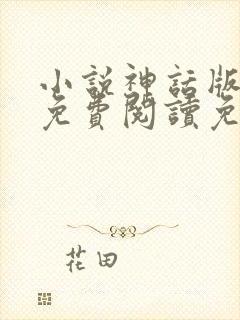 小說神話版
免費閱讀免
花田